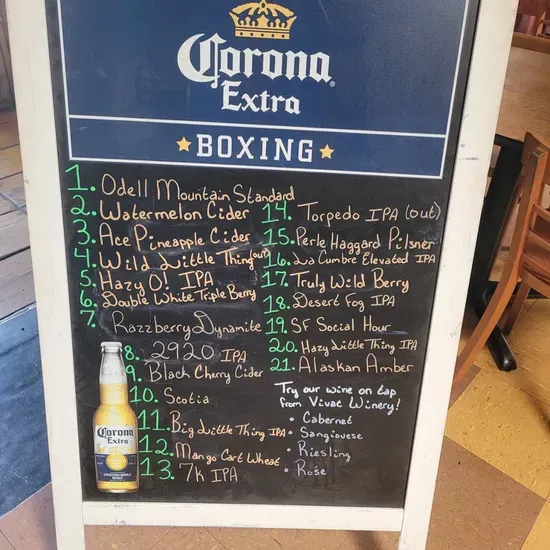 Corona
Extra
BOXING
1. Odell Mountain Standard
2. Watermelon Cider
3. Ace Pineapple Cider
4. Wild Little Thing (out)
5. Hazy O! IPA
6. Double White Triple Berry
7. Razzberry Dynamite
8. 2920 IPA
9. Black Cherry Cider
10. Scotia
11. Big Little Thing IPA
12. Mango Cart Wheat
13. 7K IPA
14. Torpedo IPA (out)
15. Perle Haggard Pilsner
16. La Cumbre Elevated IPA
17. Truly Wild Berry
18. Desert Fog IPA
19. SF Social Hour
20. Hazy Little Thing IPA
21. Alaskan Amber
Try our wine on tap
from Vivac Winery!
• Cabernet
• Sangiovese
• Riesling
• Rosé
Corona
Extra